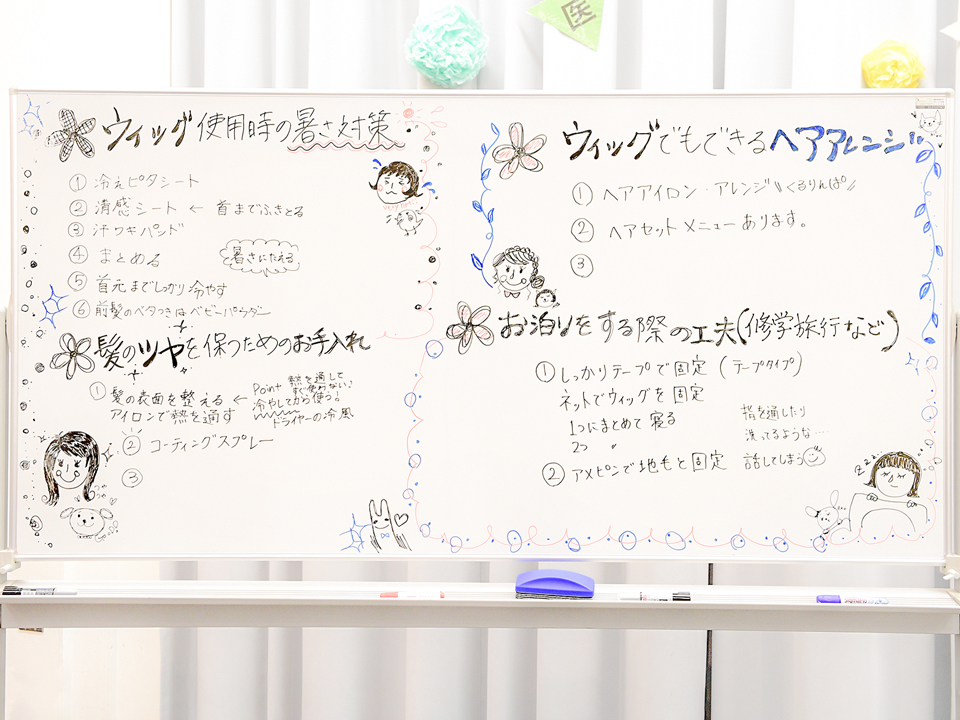 医
ウィッグ使用時の暑さ対策
① 冷えピタシート
② 清感シート ← 首までふきとる
③ 汗ワキパッド
④ まとめる
暑さにたえる
⑤ 首元までしっかり冷やす
⑥ 前髪のベタつきはベビーパウダー
髪のツヤを保つためのお手入れ
① 髪の表面を整える ←
アイロンで熱を通す
Point 熱を通して
すぐ使わない!
冷やしてから使う!
ドライヤーの冷風
② コーティングスプレー
③
ウィッグでもできるヘアアレンジ
① ヘアアイロン・アレンジ "くるりんぱ"
② ヘアセットメニューあります。
③
お泊りをする際の工夫(修学旅行など)
① しっかりテープで固定 (テープタイプ)
ネットでウィッグを固定
1つにまとめて寝る
2つ 〃
② アメピンで地毛と固定
指を通したり
洗ってるような…
話してしまう
zzz